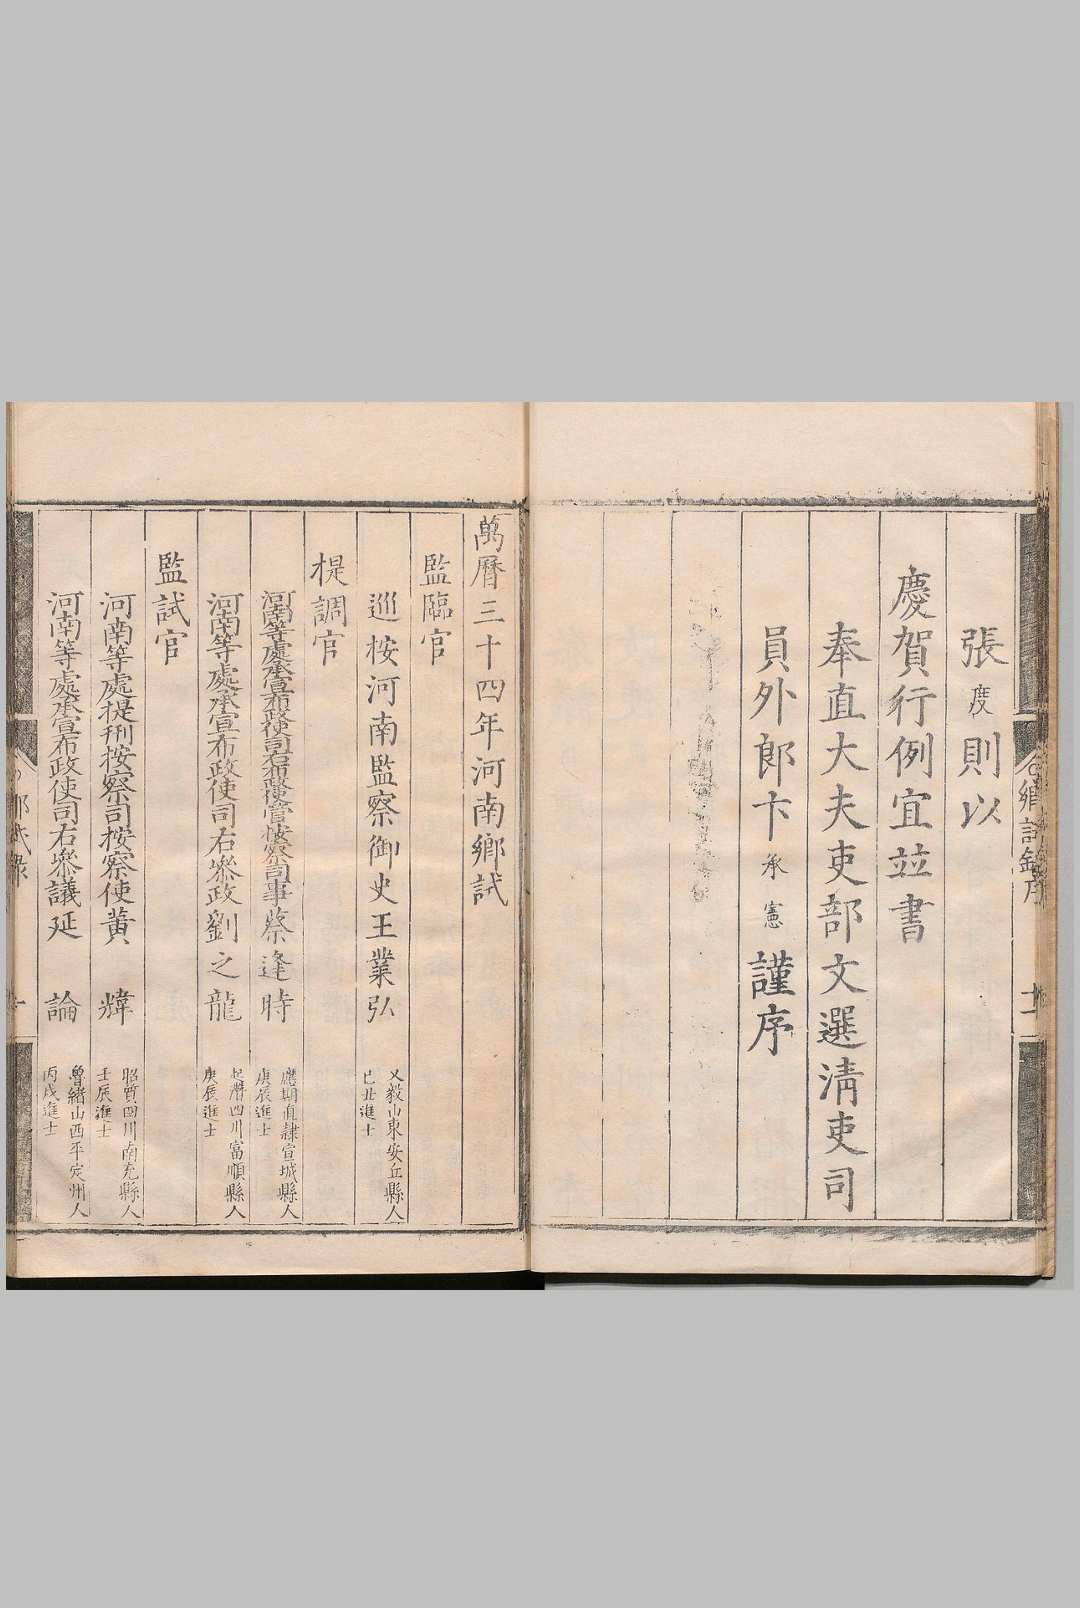 鄉試錄序
張度則以
慶賀行例宜並書
奉直大夫吏部文選清吏司
員外郎卞承憲謹序
萬曆三十四年河南鄉試
監臨官
巡按河南監察御史王業弘
又毅山東安丘縣人
己丑進士
提調官
河南等處承宣布政使司右布政使管按察司事蔡逢時
應期直隸宣城縣人
庚辰進士
河南等處承宣布政使司右叅政劉之龍
四川富順縣人
庚辰進士
監試官
河南等處提刑按察司按察使黃煒
昭質四川南充縣人
壬辰進士
河南等處承宣布政使司右叅議延論
曾緒山西平定州人
丙戌進士